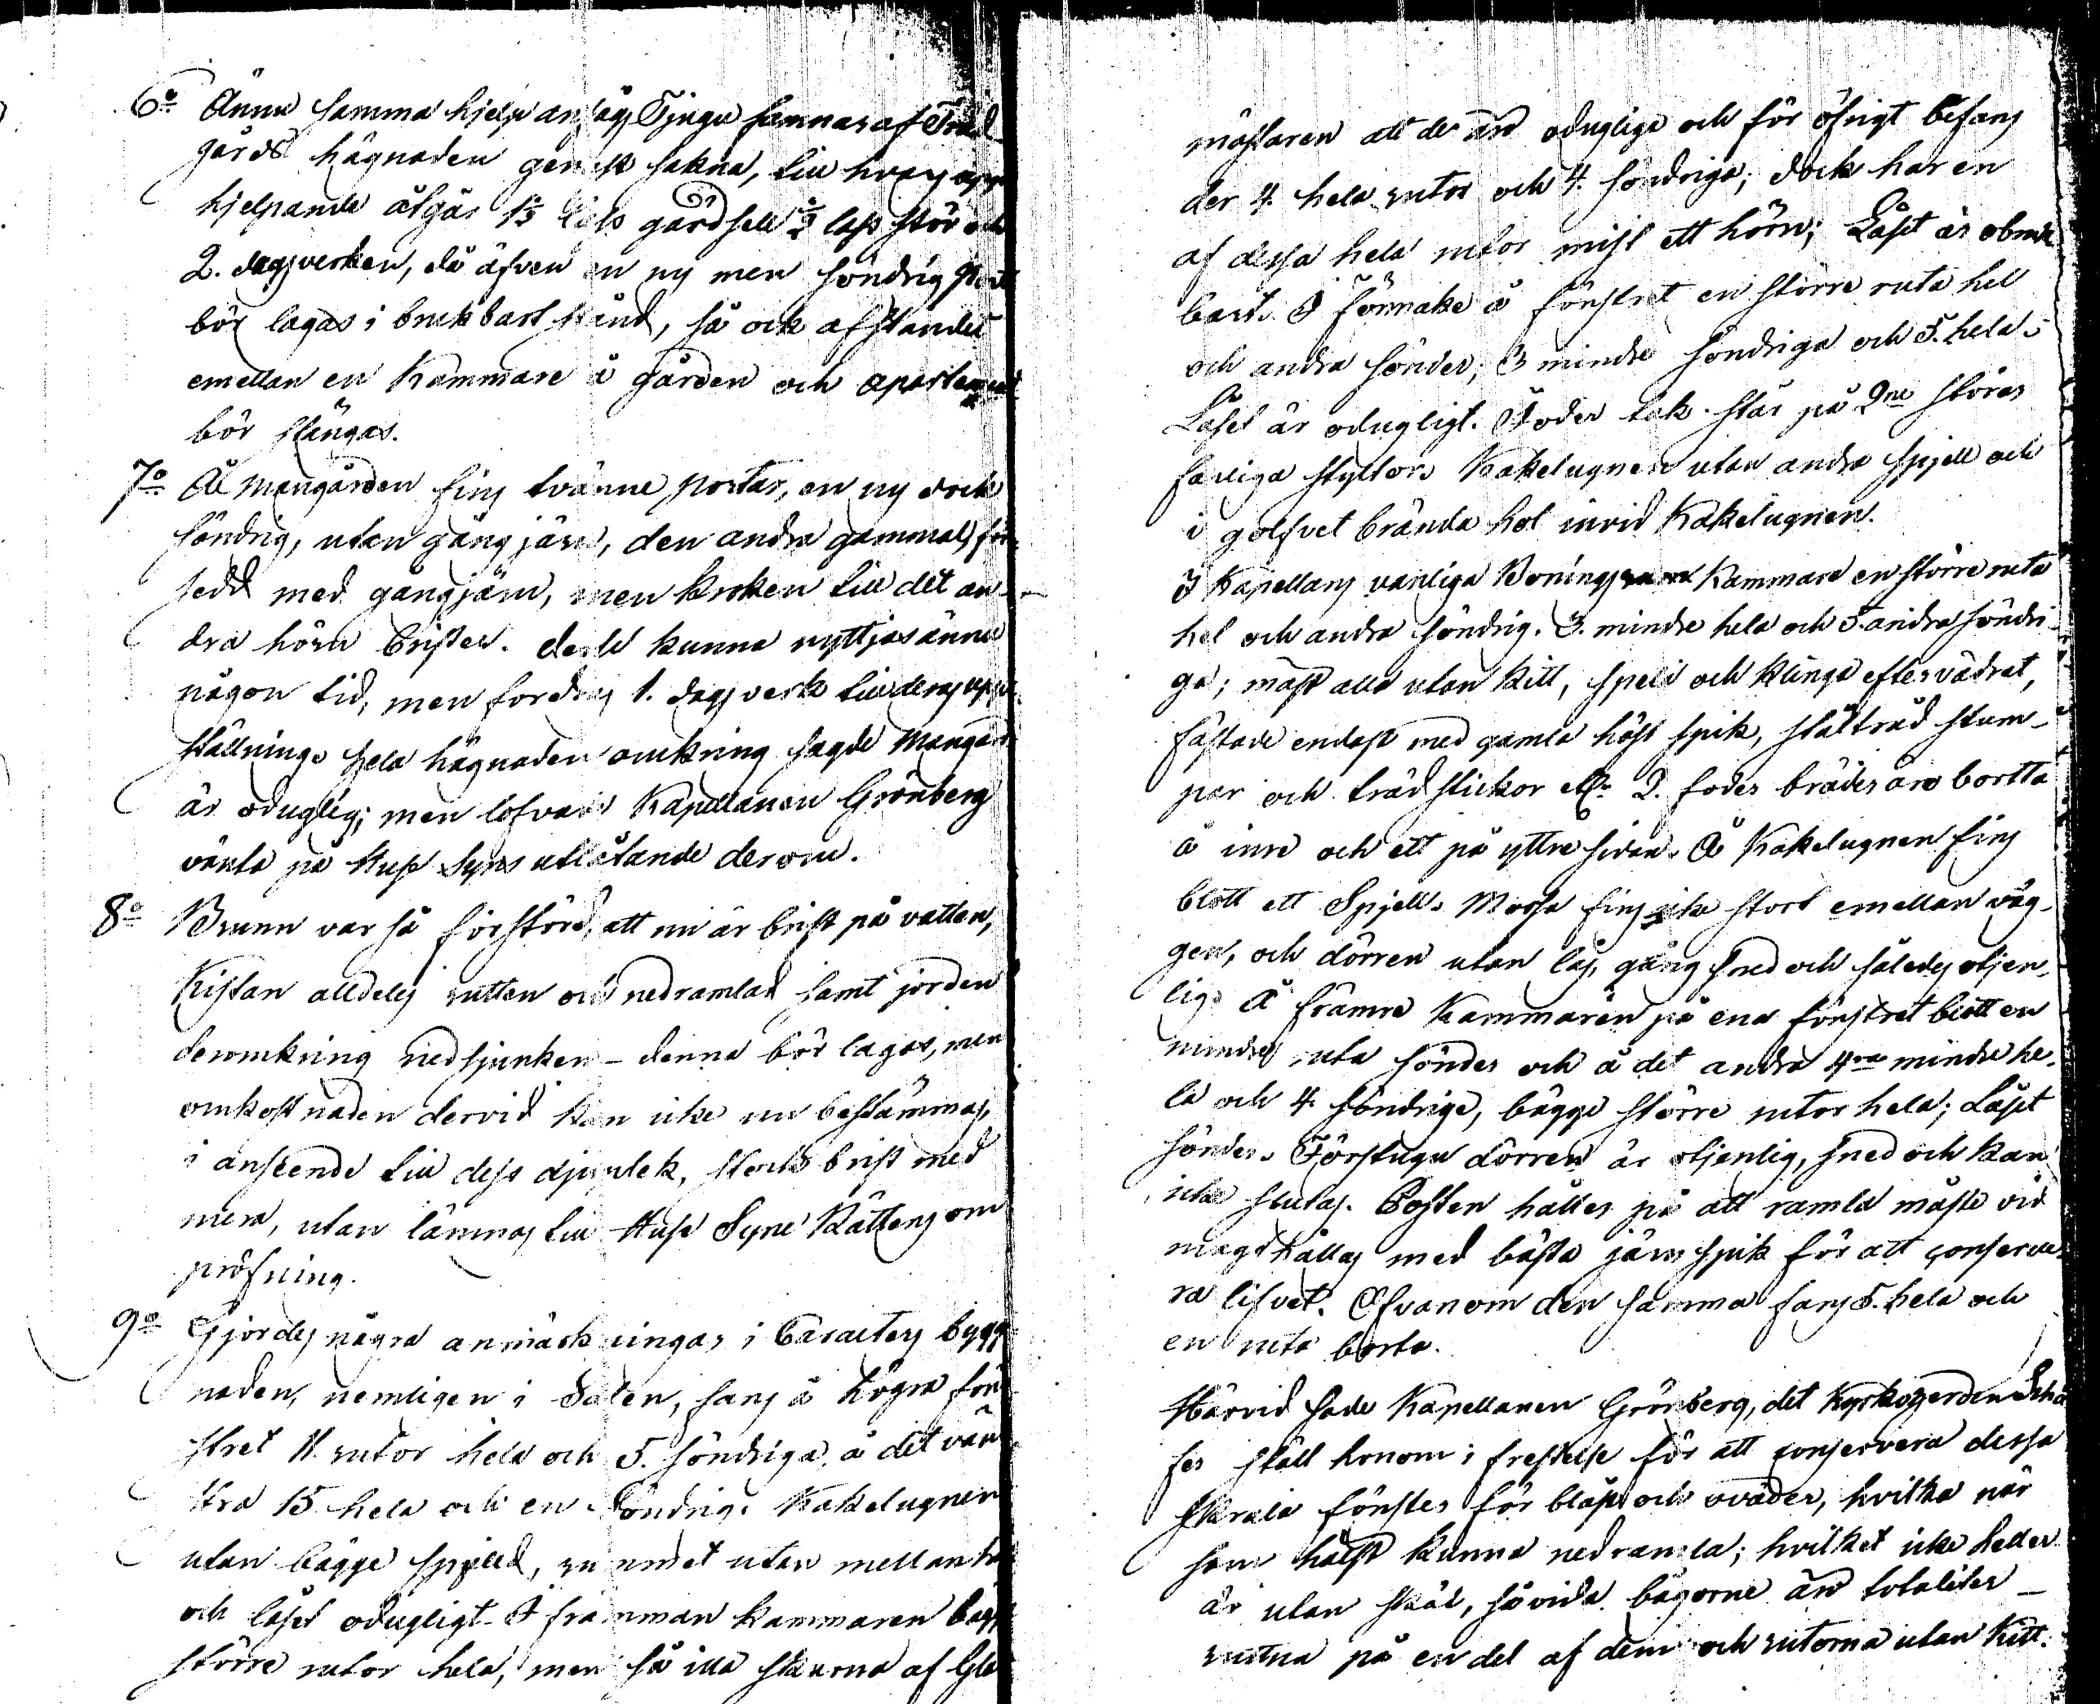 6o Ännu samma hjelp anlägg Tjugu famnar af Träd
gårds hägnaden genast sakna, till hvars upp
hjelpande åtgår 1½ Lass gärdsell ½ lass stör och
2. dagsverken, då äfven en ny men söndrig Port
bör lagas i brukbart stånd, så ock afståndet
emellan en Kammare å gården och apartement
bör stängas.
7o Å Mangården fins tvänne portar, en ny dock
söndrig, utan gångjärn, den andra gammal, för
sedd med gångjärn, men kroken till det an-
dra hörn brister. desse kunna nyttjas ännu
någon tid, men fordras 1. dagsverk till deras upp
ställning. hela hägnaden omkring sagde Mangård
är oduglig; men lofvade Kapellanen Grönberg
vänta på Husesyns utlåtande derom.
8o Brunn var så förstörd, att nu är brist på vatten,
Kistan alldeles rutten och nedramlad samt jorden
deromkring nedsjunken - denna bör lagas, men
omkostnaden dervid kan icke nu bestämmas,
i anseende till dess djuplek, storleks brist med
mera, utan lämnas till Huse Syne Rättens om
pröfning.
9o Gjordes några anmärkningar i Caracters bygg
naden, nemligen i Salen, fans å högra fön
stret 11. rutor hela och 5. söndriga, å det vän
stra 15 hela och en Söndrig. Kakelugnen
utan bägge spjeld, rummet utan mellantak
och låset odugligt. I främman kammaren bägge
större rutor hela, men så illa skurna af Glas
mästaren att de äro odugliga och för öfrigt befans
der 4. hela rutor och 4. söndriga; dock har en
af dessa hela rutor mist ett hörn; Låset är obruk
bart. I Förmake å fönstret en större ruta hel
och andra sönder; 3 mindre söndriga och 5. hela.
Låset är odugligt. Foder tak står på 2ne större
farliga styltor. Kakelugnen utan andra spjell och
i golfvet brända hol invid Kakelugnen.
I Kapellans vanliga Bonings Kammare en större ruta
hel och andra söndrig. 3. mindre hela och 5. andra söndri
ga; mäst alla utan kitt, spela och klinga efter vädret,
fästade endast med gamla häst spik, stältråd stum-
par och trädstickor etc. 2. foder bräder äro bortta
å inre och ett på yttre sidan. Å Kakelugnen fins
blott ett Spjell. Mossa fins icke stort emellan väg-
gen, och dörren utan lås, gång sned och således otjen-
lig. Å främre Kammaren på ena fönstret blott en
mindre ruta sönder och å det andra 4ra mindre he-
la och 4. söndriga, bägge större rutor hela; Låset
sönder. Förstugu dörren är otjenlig, sned och kan
icke slutas. Posten håller på att ramla måste vid
magt hållas med bästa järn spik för att conserve
ra lifvet. Ofvanom den samma fans 5. hela och
en ruta borta.
Härvid sade Kapellanen Grönberg, det Kyrkoherden
ställt honom i frestelse för att conservera dessa
skrala fönster för blåst och oväder, hvilka när
som hälst kunna nedramla; hvilket icke heller
är utan skäl, såvida bågorne äro totaliter
rutna på en del af dem och rutorna utan Kitt.